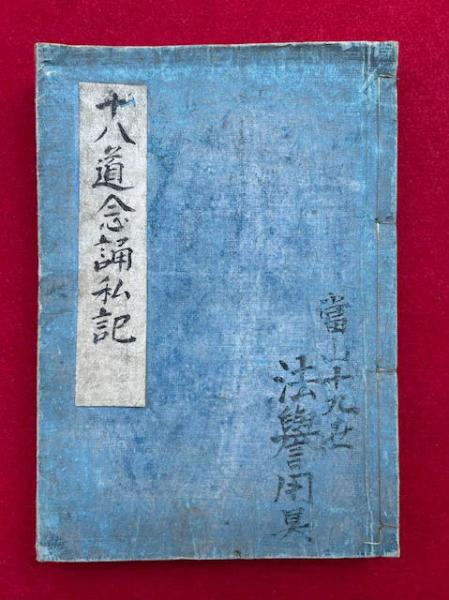 十八道念誦私記
當山十九世
法譽用具